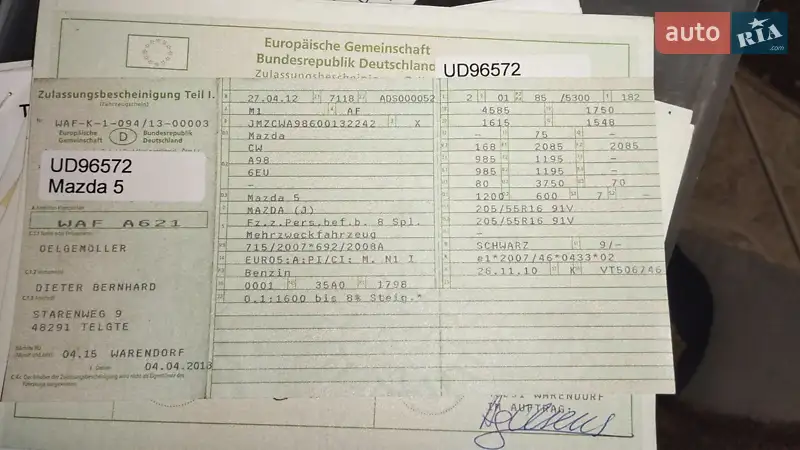 auto RIA
Europäische Gemeinschaft
Bundesrepublik Deutschland
UD96572
Zulassungsbescheinigung Teil I
(Fahrzeugschein)
WAF-K-1-094/13-00003
Europäische Gemeinschaft
D
Bundesrepublik Deutschland
UD96572
Mazda 5
WAF A621
OELGEMÖLLER
DIETER BERNHARD
STARENWEG 9
48291 TELGTE
04.15 WARENDORF
04.04.2013
27.04.12 7118 ADS000052
M1 AF
JMZCWA98600132242 X
Mazda
CW
A98
6EU
–
Mazda 5
MAZDA (J)
Fz.z.Pers.bef.b. 8 Spl.
Mehrzweckfahrzeug
715/2007*692/2008A
EURO5:A:PI/CI: M, N1 I
Benzin
0001 35A0 1798
0.1:1600 bis 8% Steig.*
2 01 85 /5300 182
4585 1750
1615 1548
– 75 –
168 2085 2085
985 1195 –
985 1195 –
80 3750 70
1200 600 7 –
205/55R16 91V
205/55R16 91V
–
SCHWARZ 9/–
e1*2007/46*0433*02
26.11.10 K VT506746
WARENDORF
IM AUFTRAG: